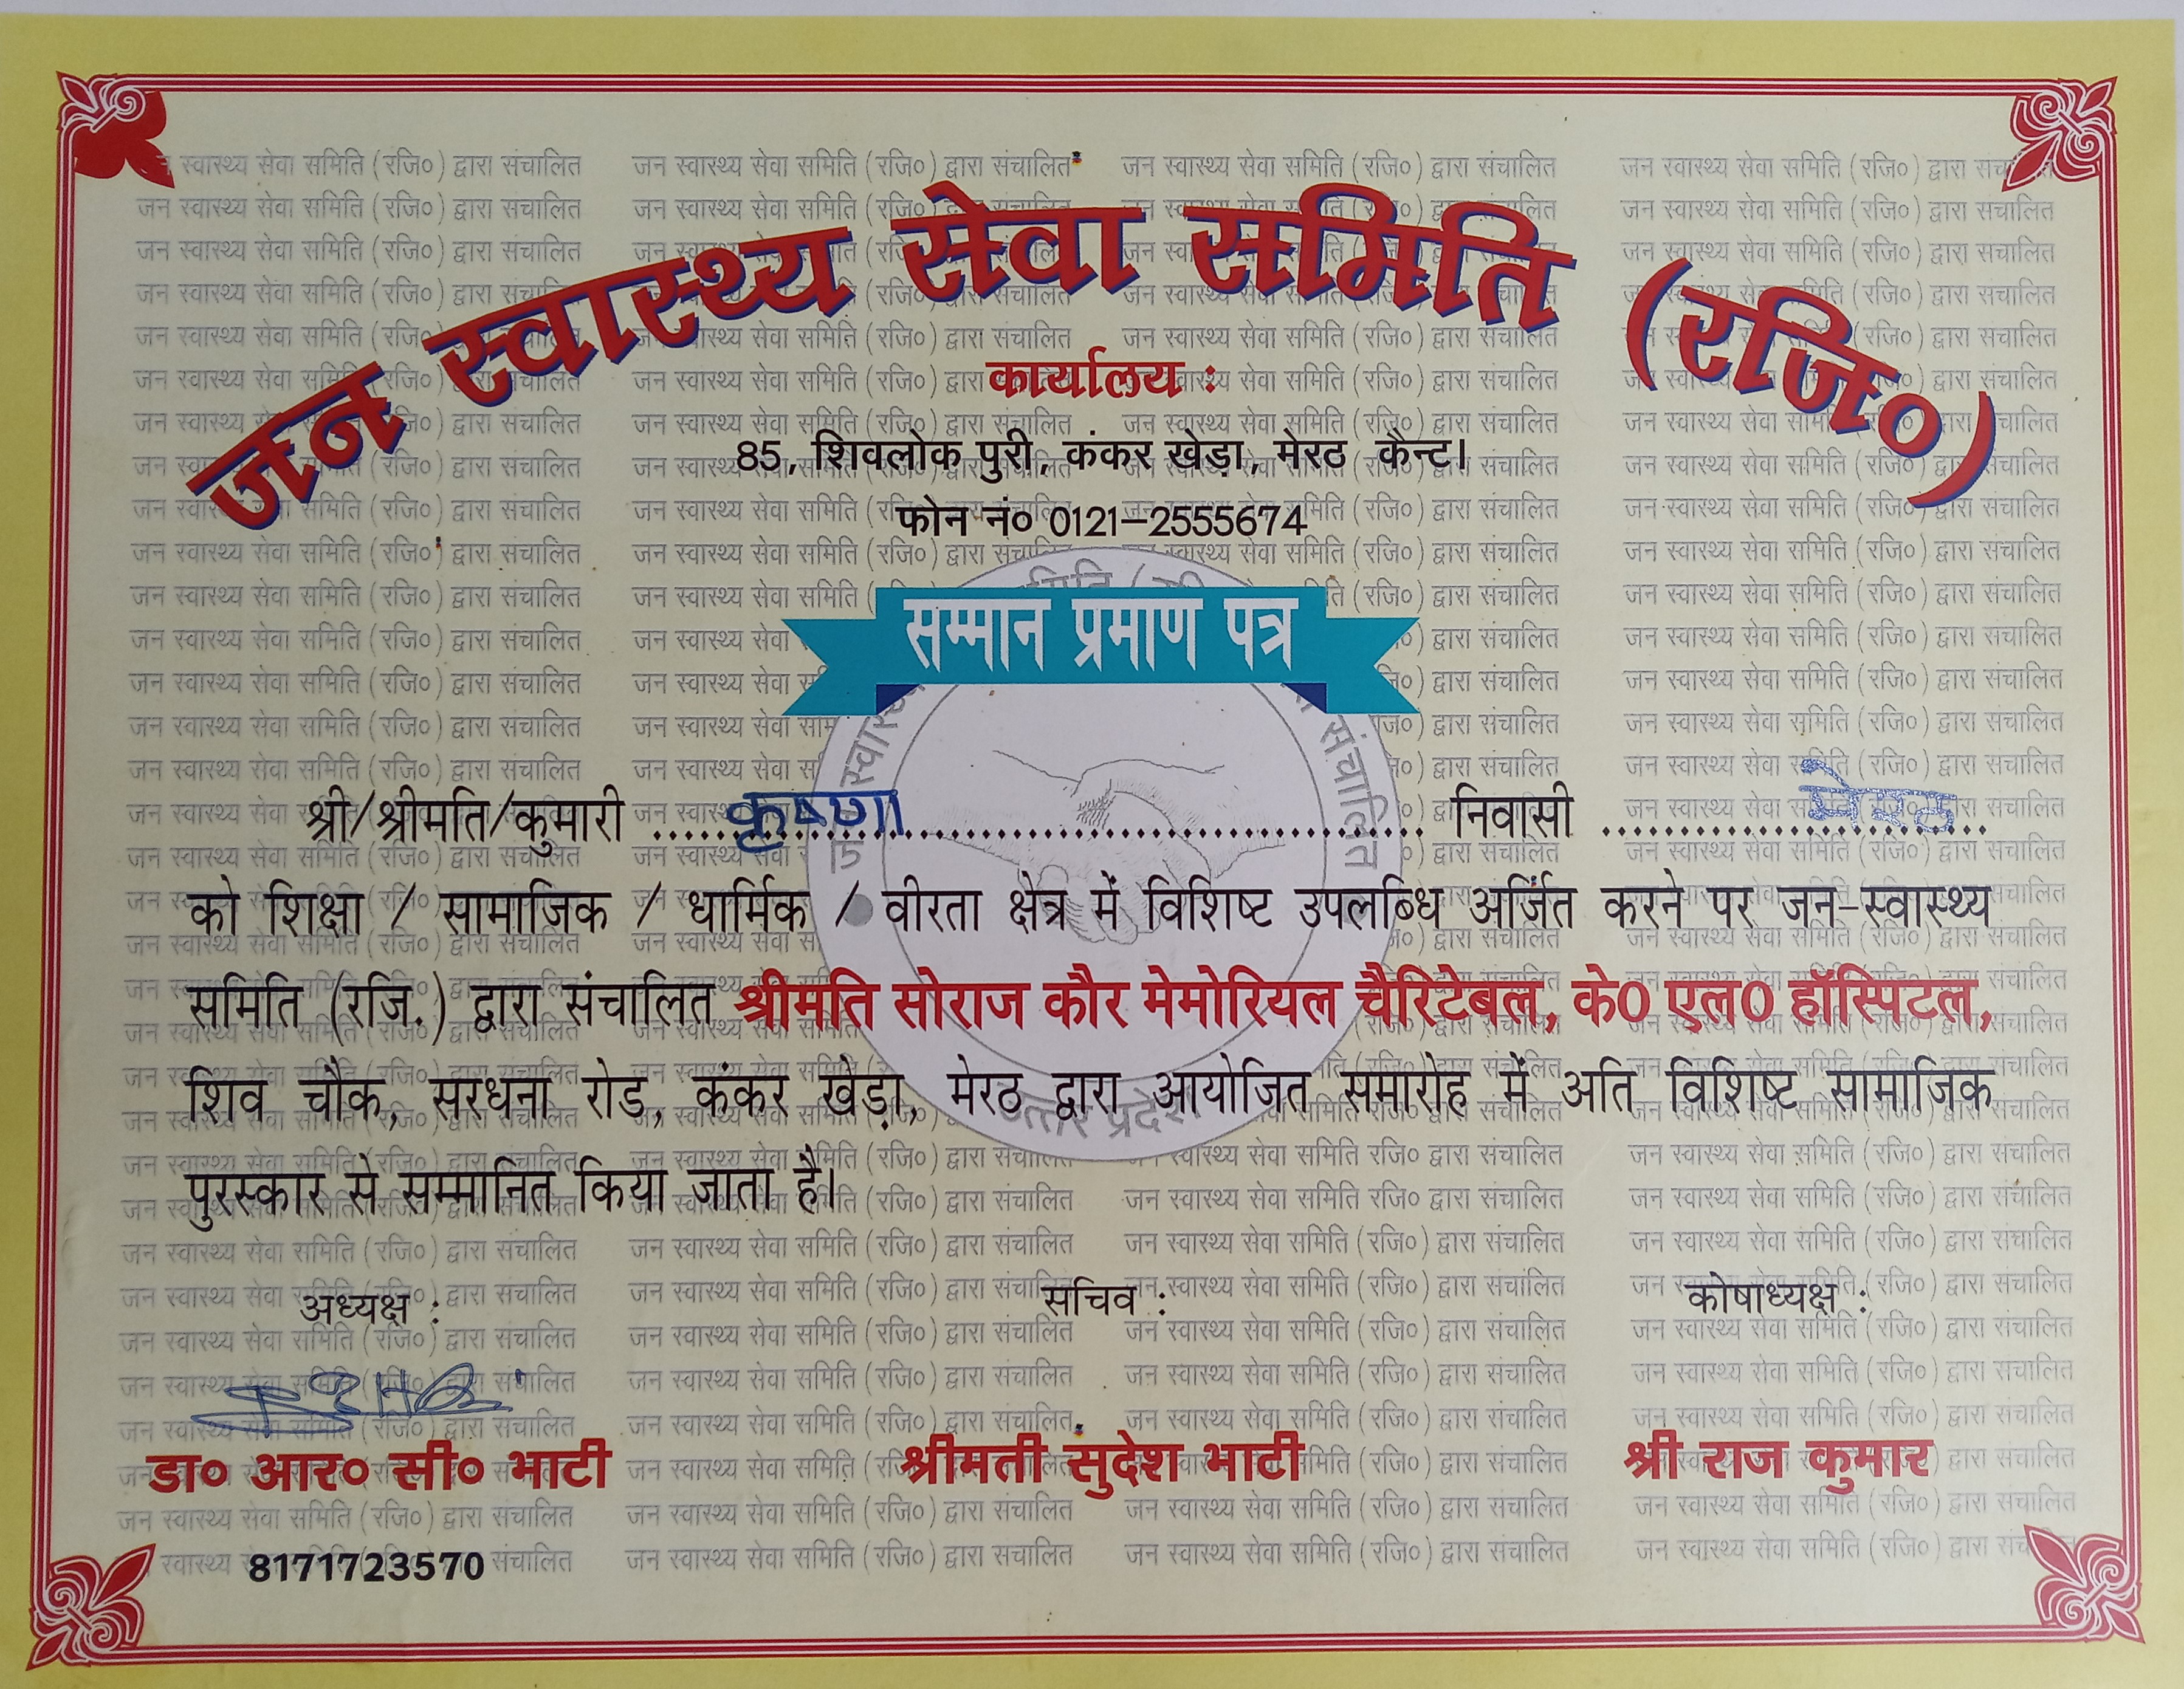 जन स्वास्थ्य सेवा समिति (रजि०)
कार्यालय :
85, शिवलोक पुरी, कंकर खेड़ा, मेरठ कैन्ट।
फोन नं० 0121–2555674
सम्मान प्रमाण पत्र
श्री/श्रीमति/कुमारी कृष्णा निवासी मेरठ
को शिक्षा / सामाजिक / धार्मिक / वीरता क्षेत्र में विशिष्ट उपलब्धि अर्जित करने पर जन-स्वास्थ्य
समिति (रजि.) द्वारा संचालित श्रीमति सोराज कौर मेमोरियल चैरिटेबल, के0 एल0 हॉस्पिटल,
शिव चौक, सरधना रोड, कंकर खेड़ा, मेरठ द्वारा आयोजित समारोह में अति विशिष्ट सामाजिक
पुरस्कार से सम्मानित किया जाता है।
अध्यक्ष : सचिव : कोषाध्यक्ष :
डा० आर० सी० भाटी श्रीमती सुदेश भाटी श्री राज कुमार
8171723570